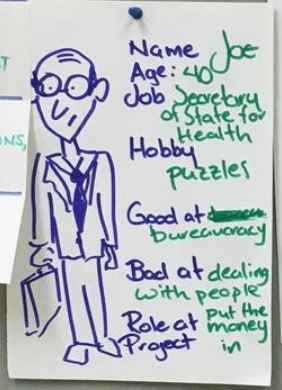 Name Joe
Age: 40
Job Secretary
of State for
Health
Hobby
puzzles
Good at
bureaucracy
Bad at dealing
with people
Role at put the
Project money
in
T
NS,